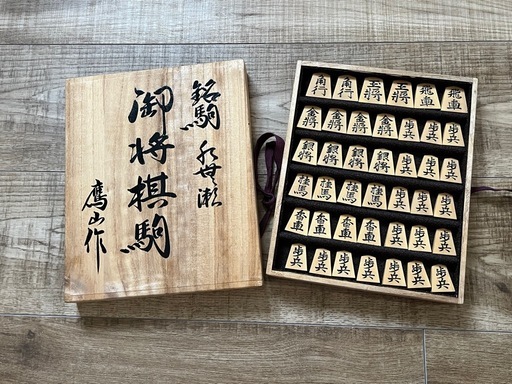 銘駒 水無瀬
御将棋駒
鷹山作
角行 角行 玉将 王将 飛車 飛車
金将 金将 金将 金将 歩兵 歩兵 歩兵
銀将 銀将 銀将 銀将 歩兵 歩兵 歩兵
桂馬 桂馬 桂馬 桂馬 歩兵 歩兵 歩兵
香車 香車 香車 香車 歩兵 歩兵 歩兵
歩兵 歩兵 歩兵 歩兵 歩兵 歩兵 歩兵